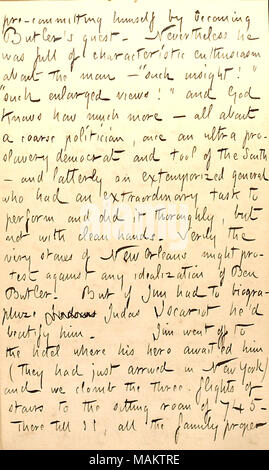 pre-committing himself by becoming
Butler's guest - Nevertheless he
was full of characteristic enthusiasm
about the man - "such insight!"
"such enlarged views!" and God
knows how much more - all about
a coarse politician, once an ultra pro-
slavery democrat and tool of the South
- and latterly an extemporized general
who had an extraordinary task to
perform and did it thoroughly, but
not with clean hands. Verily the
very stones of New Orleans might pro-
test against any idealization of Ben
Butler. But if Jim had to biogra-
phize Judas Iscariot he'd
beatify him. Jim went up to
the hotel where his hero awaited him
(they had just arrived in New York)
and we clomb the three flights of
stairs to the sitting room of 745-
There till 11, all the family proper
alamy
Image ID: MAKTRE
www.alamy.com